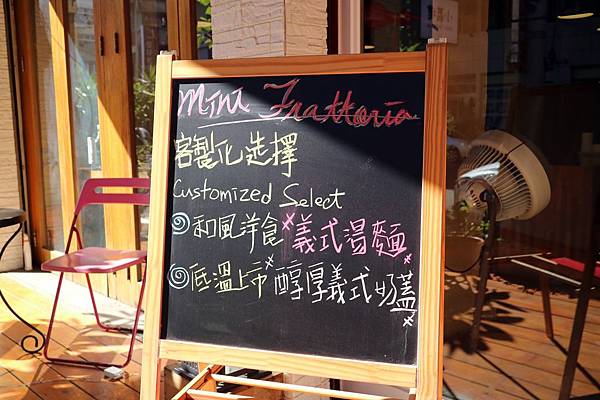 Mini Trattoria
客製化選擇
Customized Select
和風洋食 義式湯麵
低溫上市 醇厚義式奶蓋